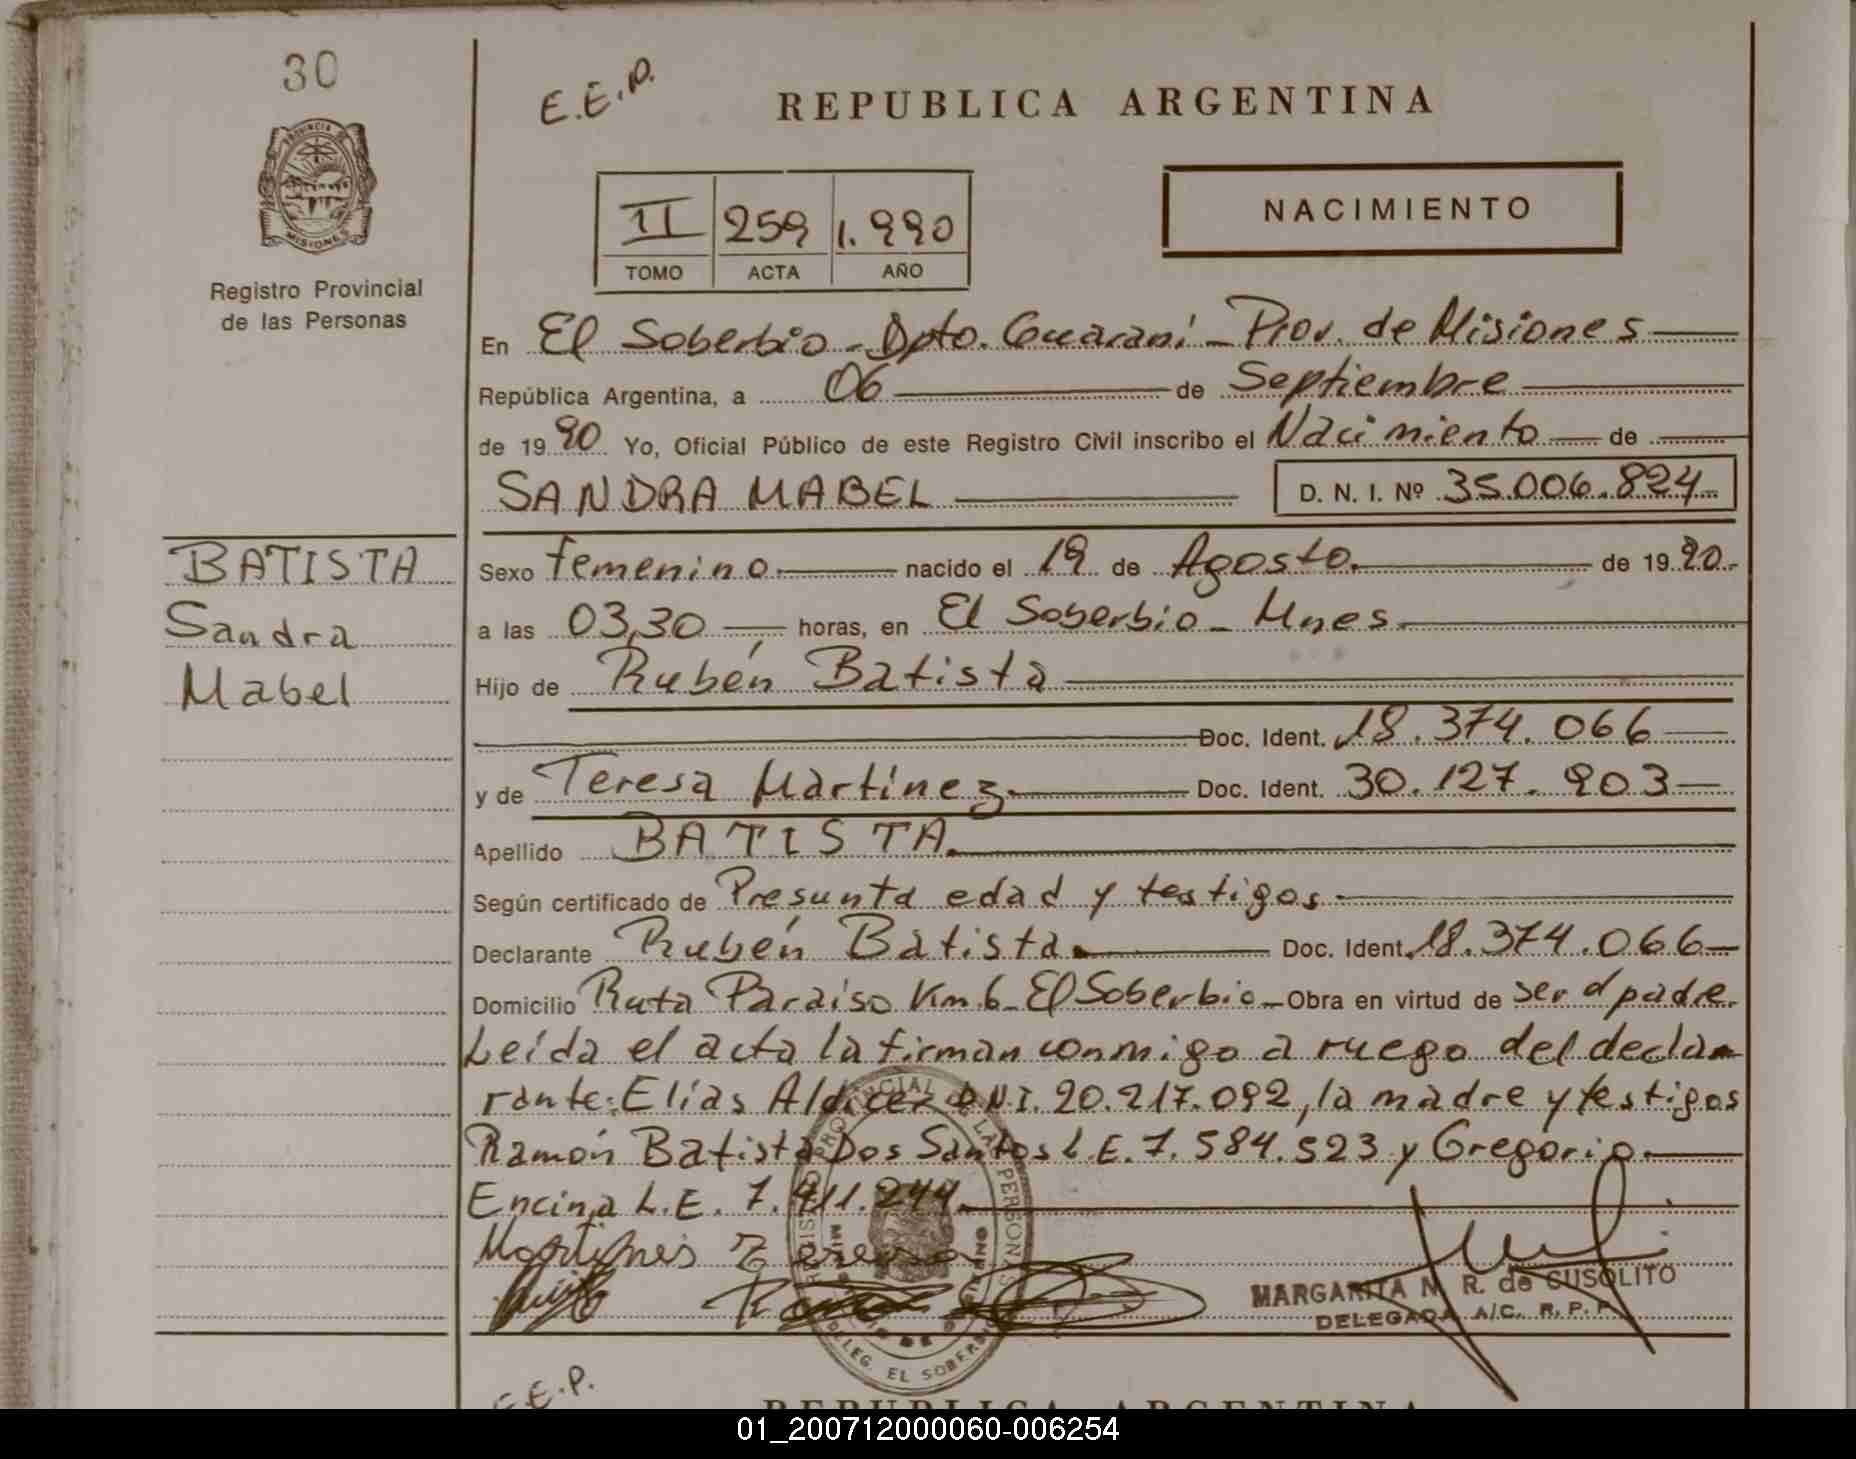 30
E.E.P.
REPUBLICA ARGENTINA
PROVINCIA DE
MISIONES
Registro Provincial
de las Personas
II 259 1.990
TOMO ACTA AÑO
NACIMIENTO
En El Soberbio - Dpto. Guaraní - Prov. de Misiones
República Argentina, a 06 de Septiembre
de 19 90 Yo, Oficial Público de este Registro Civil inscribo el Nacimiento de
SANDRA MABEL D. N. I. Nº 35.006.824
BATISTA
Sandra
Mabel
Sexo femenino nacido el 19 de Agosto. de 19 90.
a las 03,30 horas, en El Soberbio - Mnes.
Hijo de Rubén Batista
Doc. Ident. 18.374.066
y de Teresa Martínez Doc. Ident. 30.127.903
Apellido BATISTA.
Según certificado de Presunta edad y testigos
Declarante Rubén Batista Doc. Ident. 18.374.066
Domicilio Ruta Paraiso Km.6 - El Soberbio - Obra en virtud de ser el padre.
Leída el acta la firman conmigo a ruego del decla-
rante: Elías Aldicer DNI. 20.217.092, la madre y testigos
Ramón Batista Dos Santos L.E. 7.584.523 y Gregorio
Encina L.E. 7.411.244.
Martines Teresa
MARGARITA N. R. de CUSOLITO
DELEGADA A/C. R. P. P.
DELEG. EL SOBERBIO
E.E.P.
REPUBLICA ARGENTINA
01_200712000060-006254